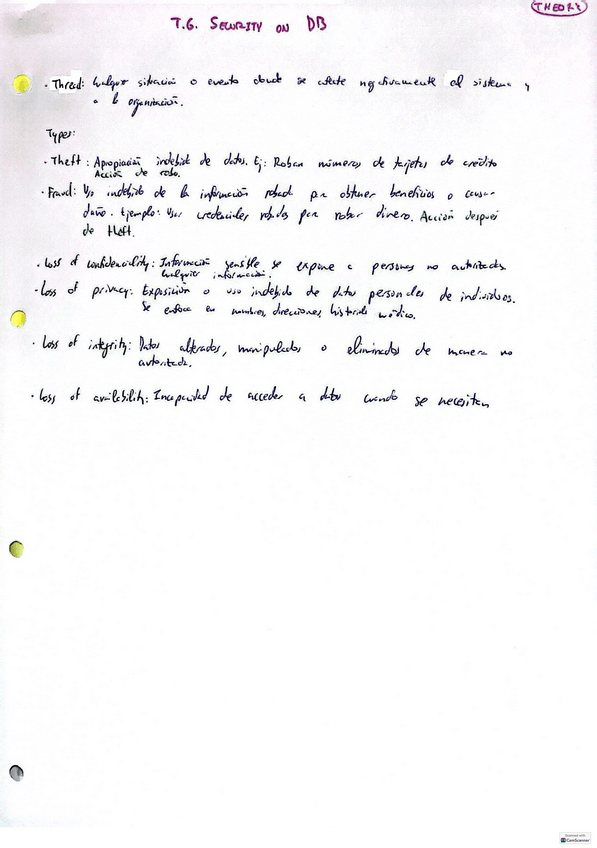 THEORY
T.6. SECURITY ON DB
· Thread: Cualquier situación o evento donde se afecte negativamente al sistema y
a la organización.
Types:
· Theft: Apropiación indebida de datos. Ej: Roban números de tarjetas de crédito
Acción de robo.
· Fraud: Uso indebido de la información robada para obtener beneficios o causar
daño. Ejemplo: Usar credenciales robadas para robar dinero. Acción después
de theft.
· Loss of confidenciality: Información sensible se expone a personas no autorizadas.
Cualquier información.
· Loss of privacy: Exposición o uso indebido de datos personales de individuos.
Se enfoca en nombres, direcciones, historial médico.
· Loss of integrity: Datos alterados, manipulados o eliminados de manera no
autorizada.
· Loss of availability: Incapacidad de acceder a datos cuando se necesitan
Scanned with
CamScanner